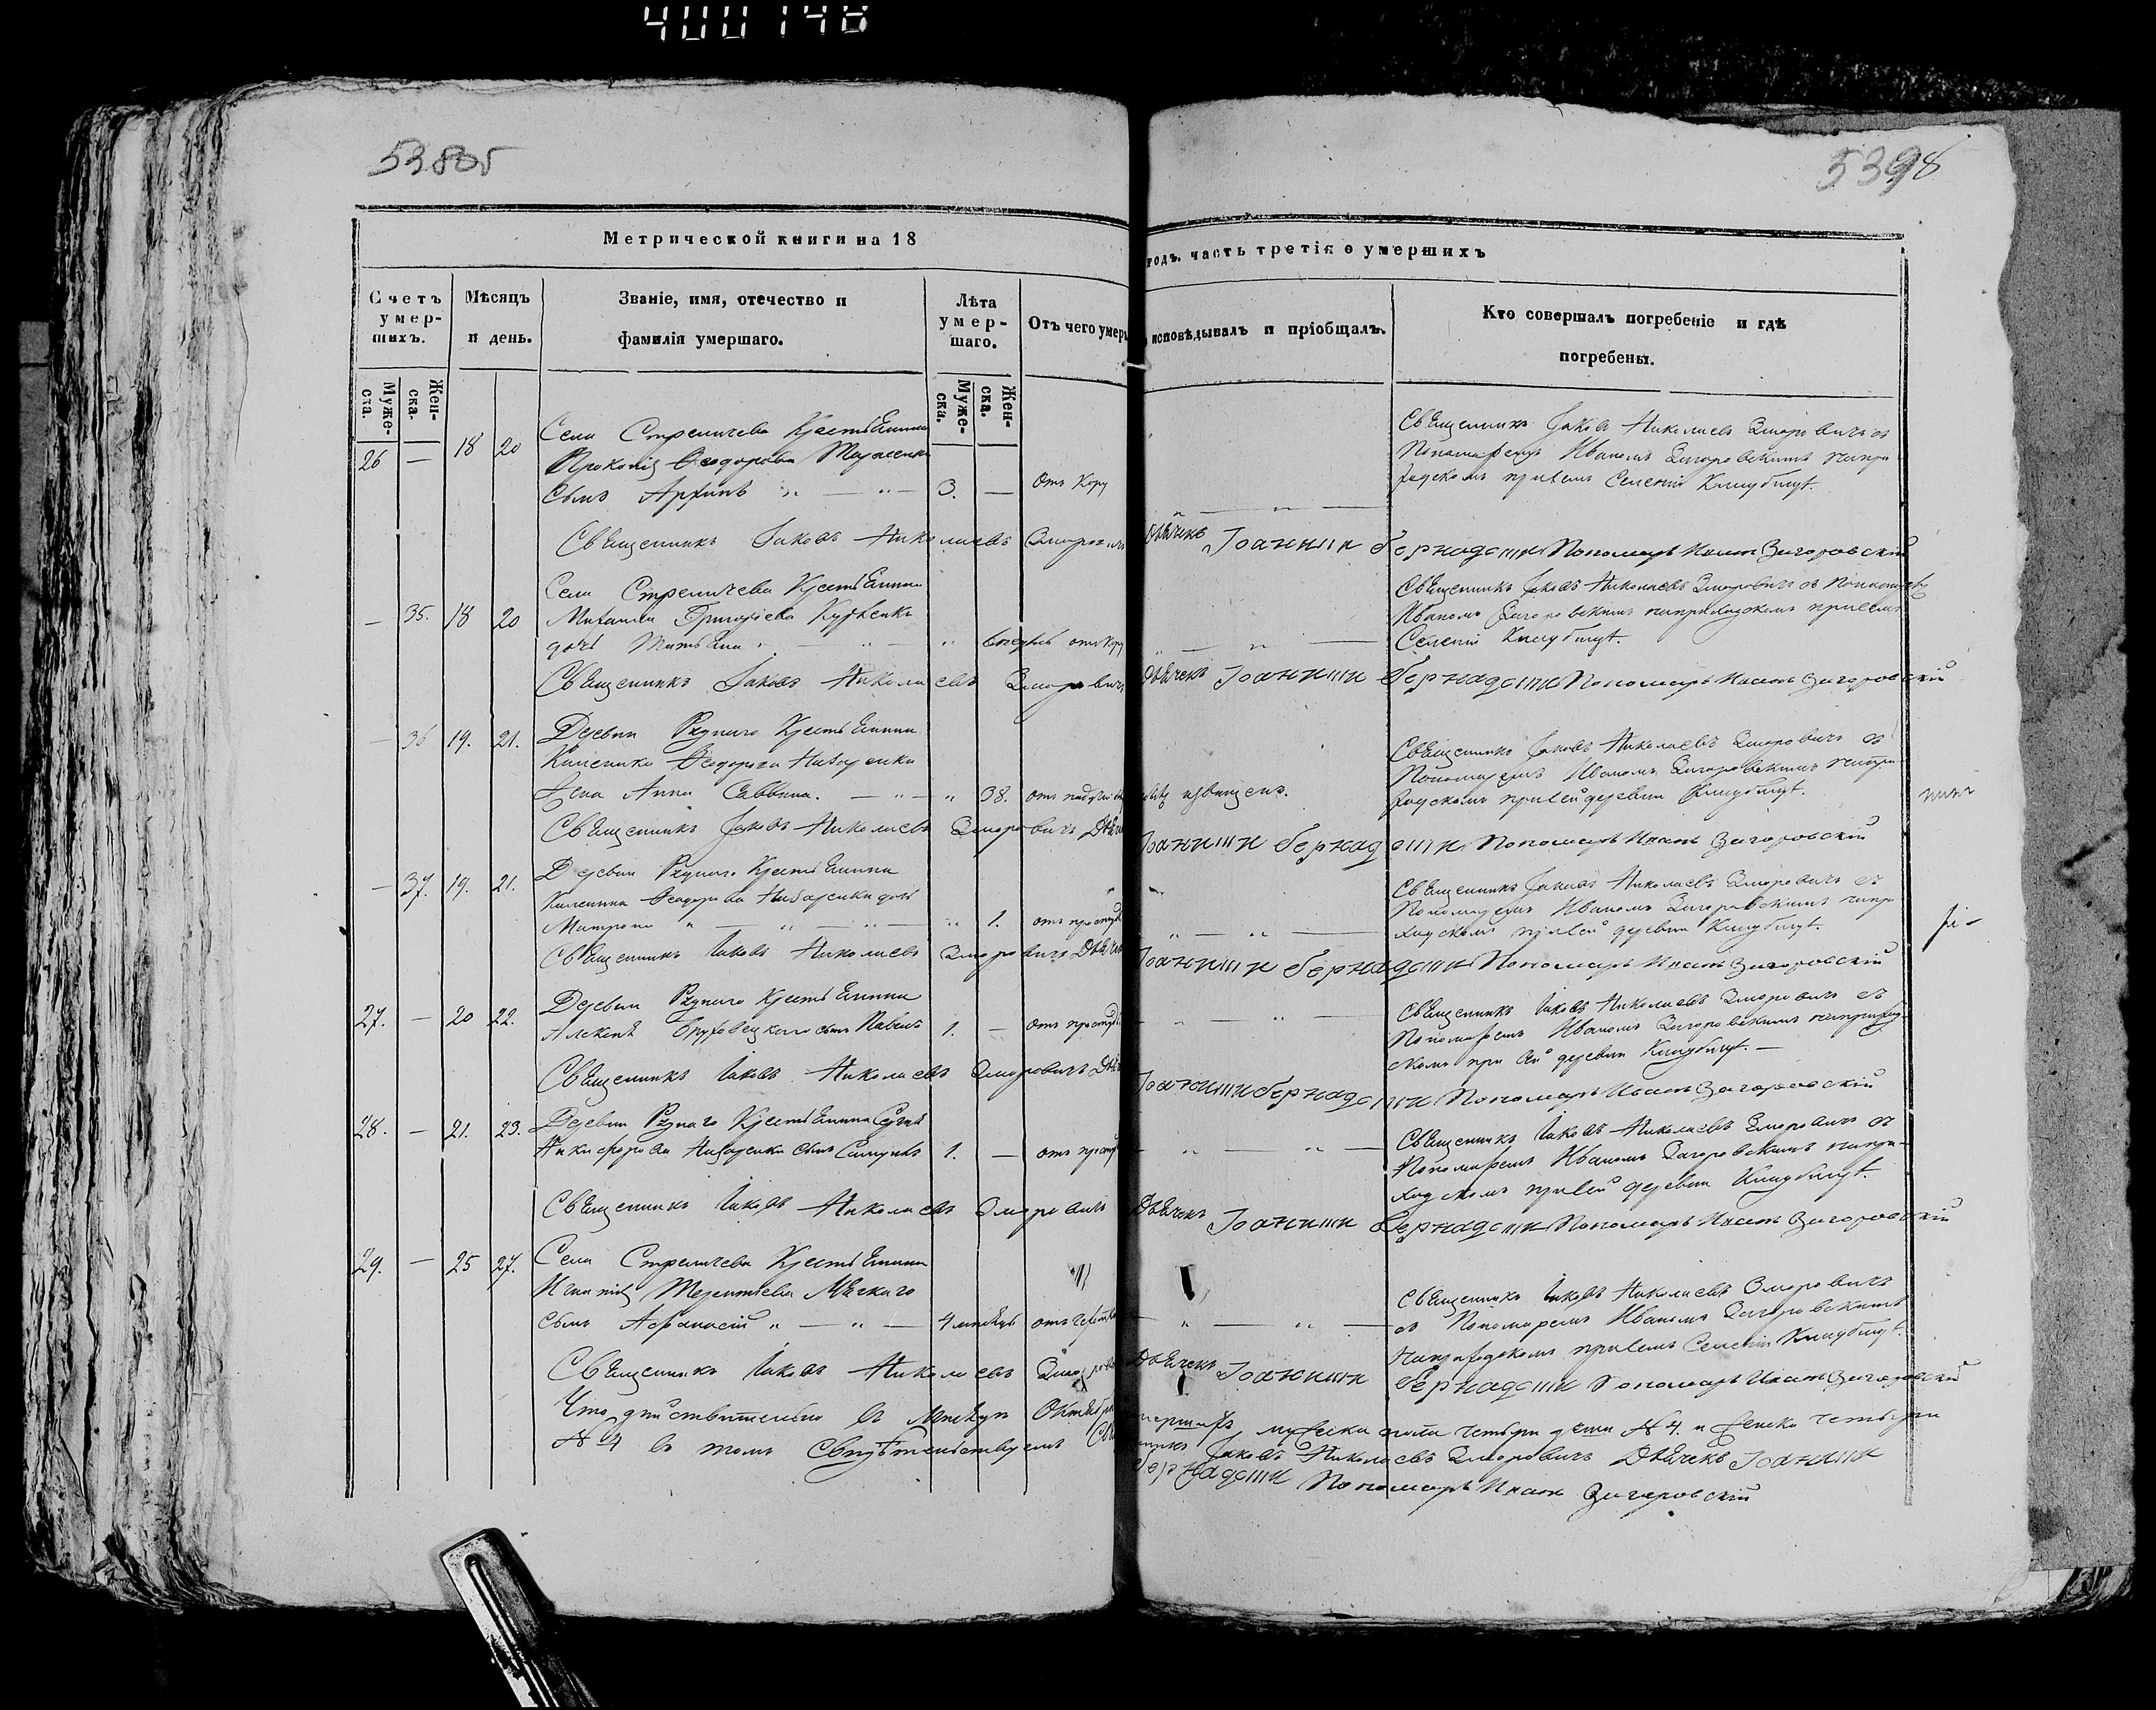 400148
538об
5398
Метрической книги на 18
годъ. часть третія о умершихъ
Счетъ умер-шихъ.
Мѣсяцъ и день.
Званіе, имя, отечество и фамилія умершаго.
Лѣта умер-шаго.
Отъ чего умер
исповѣдывалъ и пріобщалъ.
Кто совершалъ погребеніе и гдѣ погребены.
Муже-ска.
Жен-ска.
Муже-ска.
Жен-ска.
Села Стреличева Крестьянина
26 — 18 20 Прокопія Ѳеодорова
сынъ Архипъ „ — „ — 3. — отъ кору
Священникъ Іаковъ Николаевъ Эморовичъ съ
Пономаремъ Иваномъ Загоровскимъ напри
ходскомъ при семъ Селеніи Кладбищѣ.
Священникъ Іаковъ Николаевъ Эморовичъ Дьячекъ Іоаннин Бернадоши Пономарь Иванъ Загоровскій
Села Стреличева Крестьянина
— 35. 18 20 Михаила Григорьева
дочь Татьяна „ — „ — „ отъ кору
Священникъ Іаковъ Николаевъ Эморовичъ съ Пономаремъ
Иваномъ Загоровскимъ наприходскомъ при семъ
Селеніи Кладбищѣ.
Священникъ Іаковъ Николаевъ Эморовичъ Дьячекъ Іоаннин Бернадоши Пономарь Иванъ Загоровскій
— 36 19. 21. Деревни Рудного Крестьянина
Калиника Ѳеодорова Назаренка
жена Анна Саввина. — „ — „ 38. отъ
Священникъ Іаковъ Николаевъ Эморовичъ съ
Пономаремъ Иваномъ Загоровскимъ напри
ходскомъ при сей деревни Кладбищѣ.
Священникъ Іаковъ Николаевъ Эморовичъ Іоаннин Бернадоши Пономарь Иванъ Загоровскій
— 37. 19. 21. Деревни Рудного Крестьянина
Калиника Ѳеодорова Назаренка дочь
Матрона „ — „ — „ — „ 1. отъ простуд
Священникъ Іаковъ Николаевъ Эморовичъ съ
Пономаремъ Иваномъ Загоровскимъ напри
ходскомъ при сей деревни Кладбищѣ.
Священникъ Іаковъ Николаевъ Эморовичъ Дьячекъ Іоаннин Бернадоши Пономарь Иванъ Загоровскій
27. — 20 22. Деревни Рудного Крестьянина
Алексѣя сынъ Павелъ 1. — отъ простуд
Священникъ Іаковъ Николаевъ Эморовичъ съ
Пономаремъ Иваномъ Загоровскимъ наприход-
скомъ при сей деревни Кладбищѣ. —
Священникъ Іаковъ Николаевъ Эморовичъ Іоаннин Бернадоши Пономарь Иванъ Загоровскій
28. — 21. 23. Деревни Рудного Крестьянина
Никифорова Назаренка сынъ 1. — отъ простуд
Священникъ Іаковъ Николаевъ Эморовичъ съ
Пономаремъ Иваномъ Загоровскимъ напри-
ходскомъ при сей деревни Кладбищѣ.
Священникъ Іаковъ Николаевъ Эморовичъ Дьячекъ Іоаннин Бернадоши Пономарь Иванъ Загоровскій
29. — 25 27. Села Стреличева Крестьянина
Игнатія Терентьева
сынъ Афанасій „ — „ — 4 мѣсяцъ отъ
Священникъ Іаковъ Николаевъ Эморовичъ
съ Пономаремъ Иваномъ Загоровскимъ
наприходскомъ при семъ Селеніи Кладбищѣ.
Священникъ Іаковъ Николаевъ Эморовичъ Дьячекъ Іоаннин Бернадоши Пономарь Иванъ Загоровскій
Что дѣйствительно въ Мѣсяцѣ Октябрѣ умершихъ мужеска пола четыри души № 4. и женска четыри
№ 4 въ томъ свидѣтельствуемъ Священникъ Іаковъ Николаевъ Эморовичъ Дьячекъ Іоаннин
Бернадоши Пономарь Иванъ Загоровскій